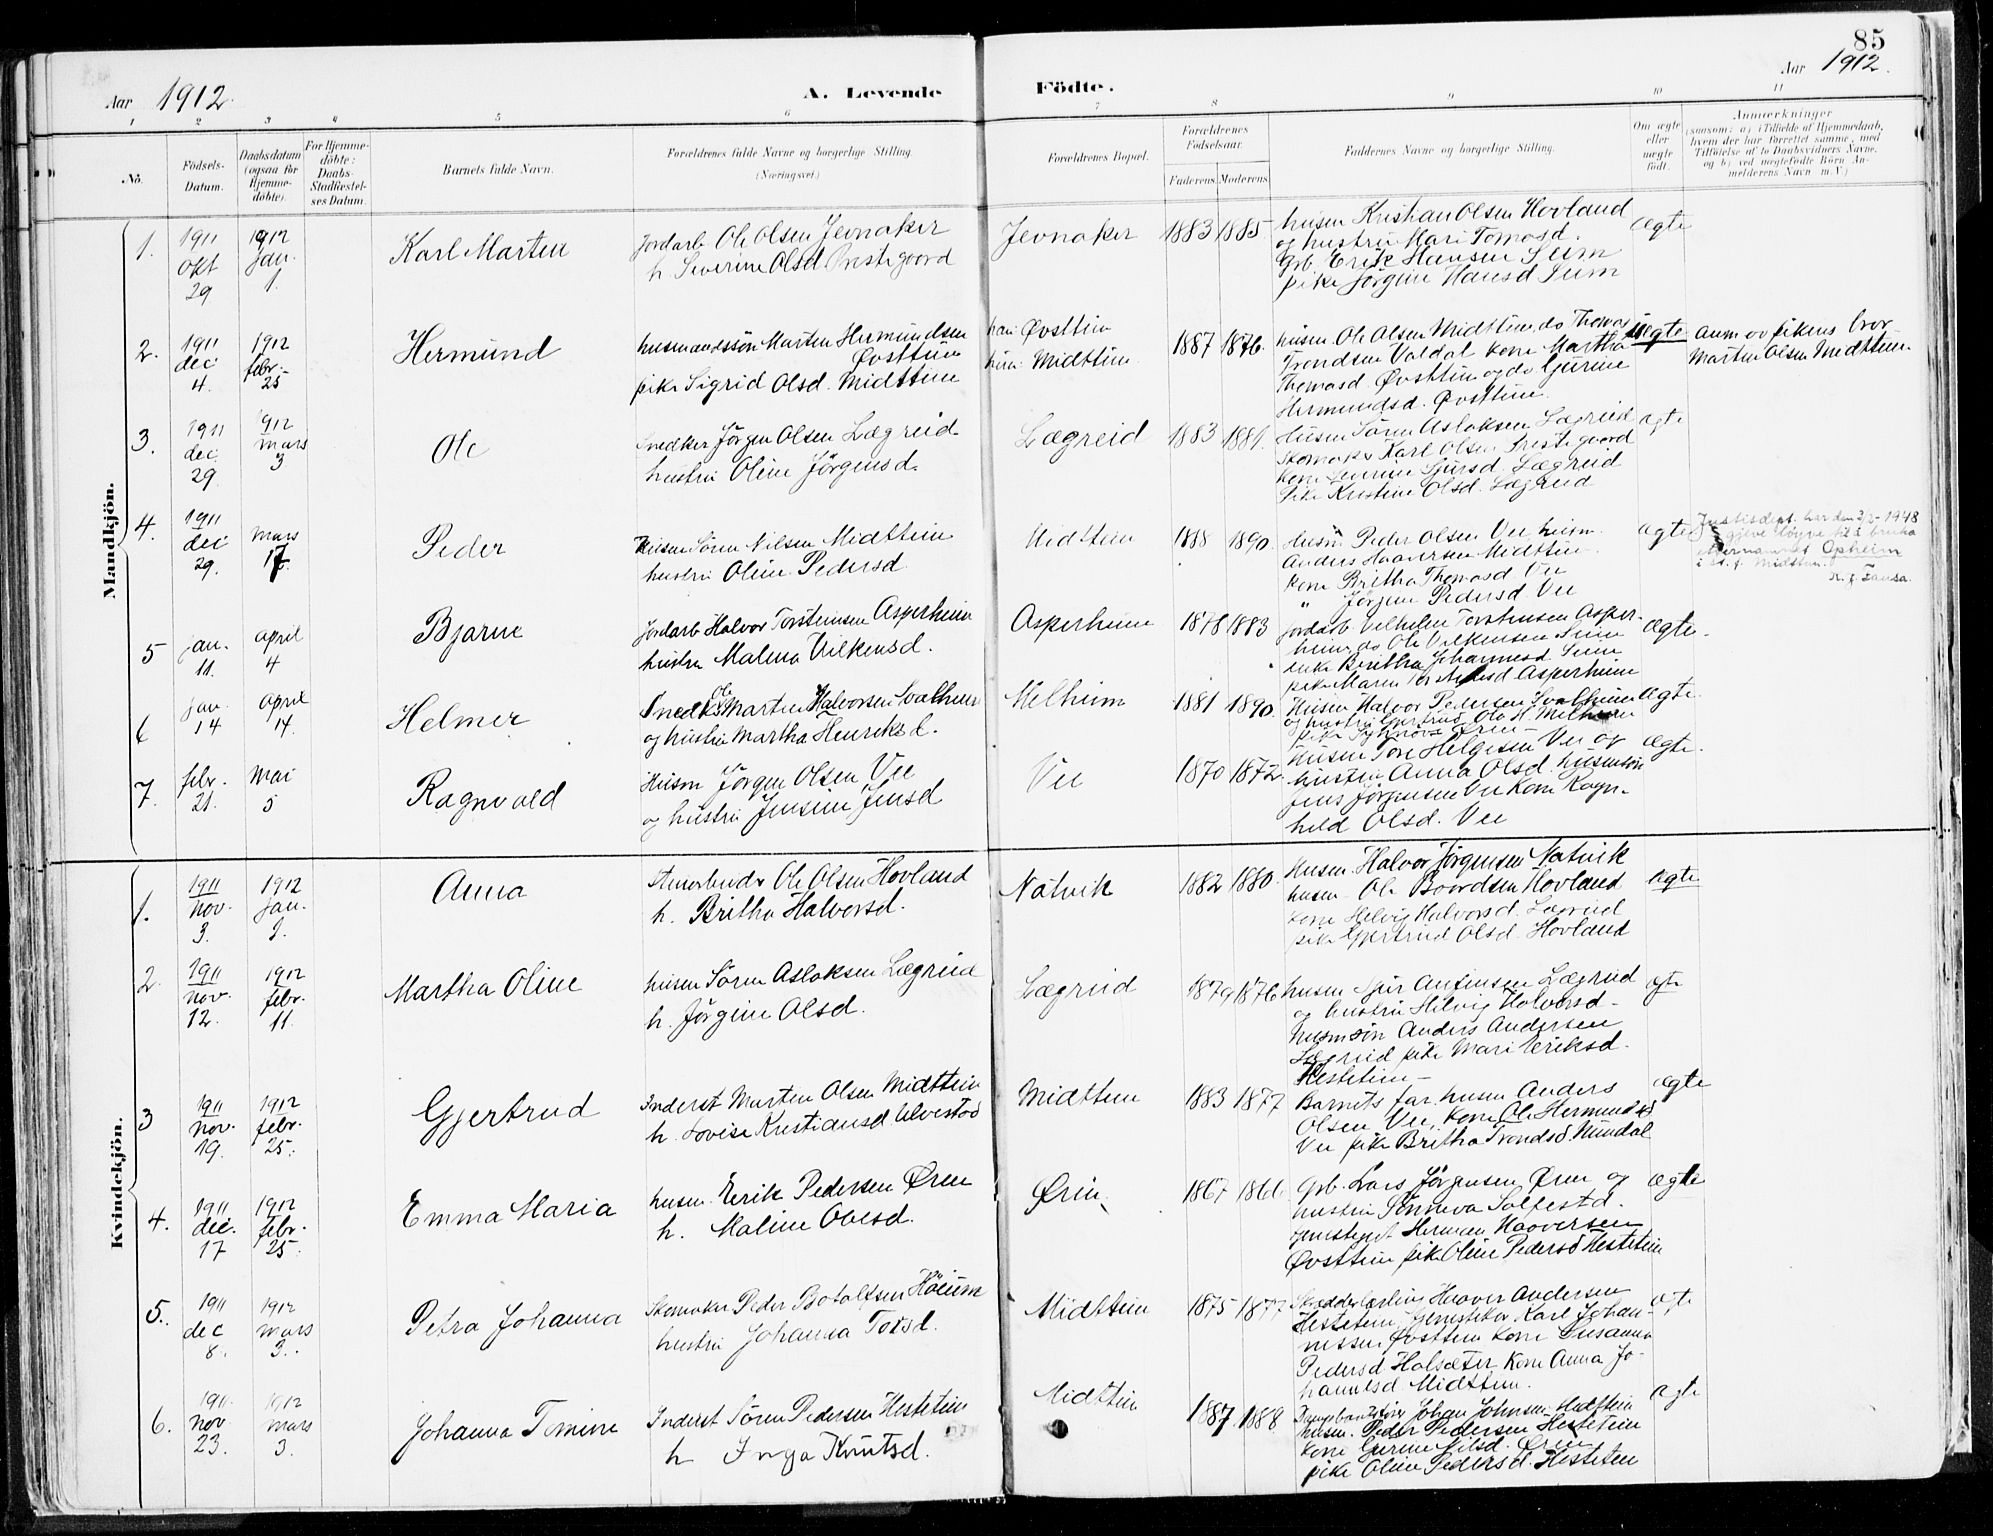 85
Aar 1912.
A. Levende Födte.
Aar 1912.
1 2 3 4 5 6 7 8 9 10 11
No.
Födsels-Datum.
Daabsdatum (ogsaa for Hjemme-döbte).
For Hjemme-döbte: Daabs-Stadfæstel-ses Datum.
Barnets fulde Navn.
Forældrenes fulde Navne og borgerlige Stilling.
(Næringsvei.)
Forældrenes Bopæl.
Forældrenes Födselsaar.
Faderens. Moderens.
Faddernes Navne og borgerlige Stilling.
Om ægte eller uægte födt.
Anmærkninger
(saasom: a) i Tilfælde af Hjemmedaab, hvem der har forrettet samme, med Tilföielse af to Daabsvidners Navne, og b) ved uægtefödte Börn Anmelderens Navn m. V.)
Mandkjön.
1. 1911 Okt 29 1912 Jan. 1.
Karl Marten
Jordarb Ole Olsen Jevnaker
h. Severine Olsd. Prestegaard
Jevnaker 1883 1885
husm Kristian Olsen Hovland
og hustru Mari Tomasd.
Grb. Erik Hansen Seim
pike Jørgine Hansd Seim
ægte
2. 1911 dec 4. 1912 febr. 25
Hermund
husmandssøn Marten Hermundsen Øvsttun
pike Sigrid Olsd. Midttun
han: Øvsttun
hun: Midttun.
1887 1876.
husm Ole Olsen Midttun, do Thomas
Trondsen Valdal kone Martha
Thomasd. Øvsttun og do Gurine
Hermundsd. Øvsttun.
uægte
anm av pikens bror
Marten Olsen Midttun.
3. 1911 dec. 29. 1912 mars 3
Ole
Snedker Jørgen Olsen Lægreid
hustru Oline Jørgensd.
Lægreid 1883 1881.
Husm Søren Aslaksen Lægreid
Skomaker Karl Olsen Prestegaard
kone Severine Sjursd. Lægreid
Pike Kristine Olsd. Lægreid
ægte
4. 1911 dec. 29. mars 17.
Peder
Husm Søren Nilsen Midttun
hustru Oline Pedersd.
Midttun 1888 1890.
Husm Peder Olsen Vee husm.
Anders Haaversen Midttun
kone Britha Thomasd. Vee
" Jørgine Pedersd. Vee
ægte
Justisdept. har den 3/2-1948
gjeve løyve til å bruka
etternamnet Opheim
i st. f. Midttun.
5 jan. 11. april 4
Bjarne
Jordarb Halvor Torsteinsen Asperheim
hustru Malena Vilkensd.
Asperheim 1878 1883
Jordarb. Vilhelm Torsteinsen Asper-
heim, do Ole Vilkensen Seim
pike Britha Johannesd Seim
pike Maren Torsteinsd Asperheim
ægte.
6 jan. 14 april 14.
Helmer
Snedker Ole Martin Halvorsen Svalheim
og hustru Martha Henriksd.
Melheim 1881 1890.
Husm Halvor Pedersen Svalheim
og hustru Gjertrud Ole H. Melheim
pike Synnøve Øren
ægte.
7. febr. 21. mai 5
Ragnvald
Husm Jørgen Olsen Vee
og hustru Jensine Jensd
Vee 1870 1872.
Husm Tore Helgesen Vee og
hustru Anna Olsd. husmsøn
Jens Jørgensen Vee kone Ragn-
hild Olsd. Vee
ægte.
Kvindekjön.
1. 1911 nov. 3. 1912 Jan. 2.
Anna
Stenarbeider Ole Olsen Hovland
h. Britha Halvorsd.
Natvik 1882 1880.
Husm. Halvor Jørgensen Natvik
husm. Ole Baardsen Hovland
kone Helvig Halvorsd. Lægreid
pike Gjertrud Olsd. Hovland
ægte
2. 1911 nov. 12. 1912 febr. 11.
Martha Oline
husm Søren Aslaksen Lægreid
h. Jørgine Olsd.
Lægreid 1879 1876
husm Sjur Anfinsen Lægreid
og hustru Hilvig Halvorsd.
husmsøn Anders Andersen
Lægreid pike Mari Eriksd.
Hestetun
ægte
3 1911 nov. 19. 1912 febr. 25.
Gjertrud
Inderst Marten Olsen Midttun
h. Lovise Kristiansd. Ulvestad
Midttun 1883 1877
Barnets far husm Anders
Olsen Vee, kone Ole Hermundsd
Vee pike Britha Trondsd. Nundal
ægte
4. 1911 dec. 17 1912 febr. 25.
Emma Maria
husm. Eerik Pedersen Øren
h. Maline Olsd.
Øren. 1867 1866.
Grb. Lars Jørgensen Øren og
hustru Synneva Salfestd.
Herman Haaversen
Øvsttun pike Oline Pedersd Hestetun
ægte
5. 1911 dec 8. 1912 mars 3.
Petra Johanna
Skomaker Peder Botolfsen Høium
hustru Johanna Torsd.
Midttun 1875 1877
Skrædderlærling Haaver Andersen
Hestetun, Karl Johan-
nessen Øvsttun kone Susanna
Pedersd Halsæter kone Anna Jo-
hannesd. Midttun.
ægte
6. 1911 nov. 23. 1912 mars 3.
Johanna Tomine
Inderst Søren Pedersen Hestetun
h Inga Knutsd.
Midttun 1887 1888
Johan Johnsen Midttun
husm. Peder Pedersen Hestetun
kone Gurine Nilsd. Øren
pike Oline Pedersd. Hestetun
ægte